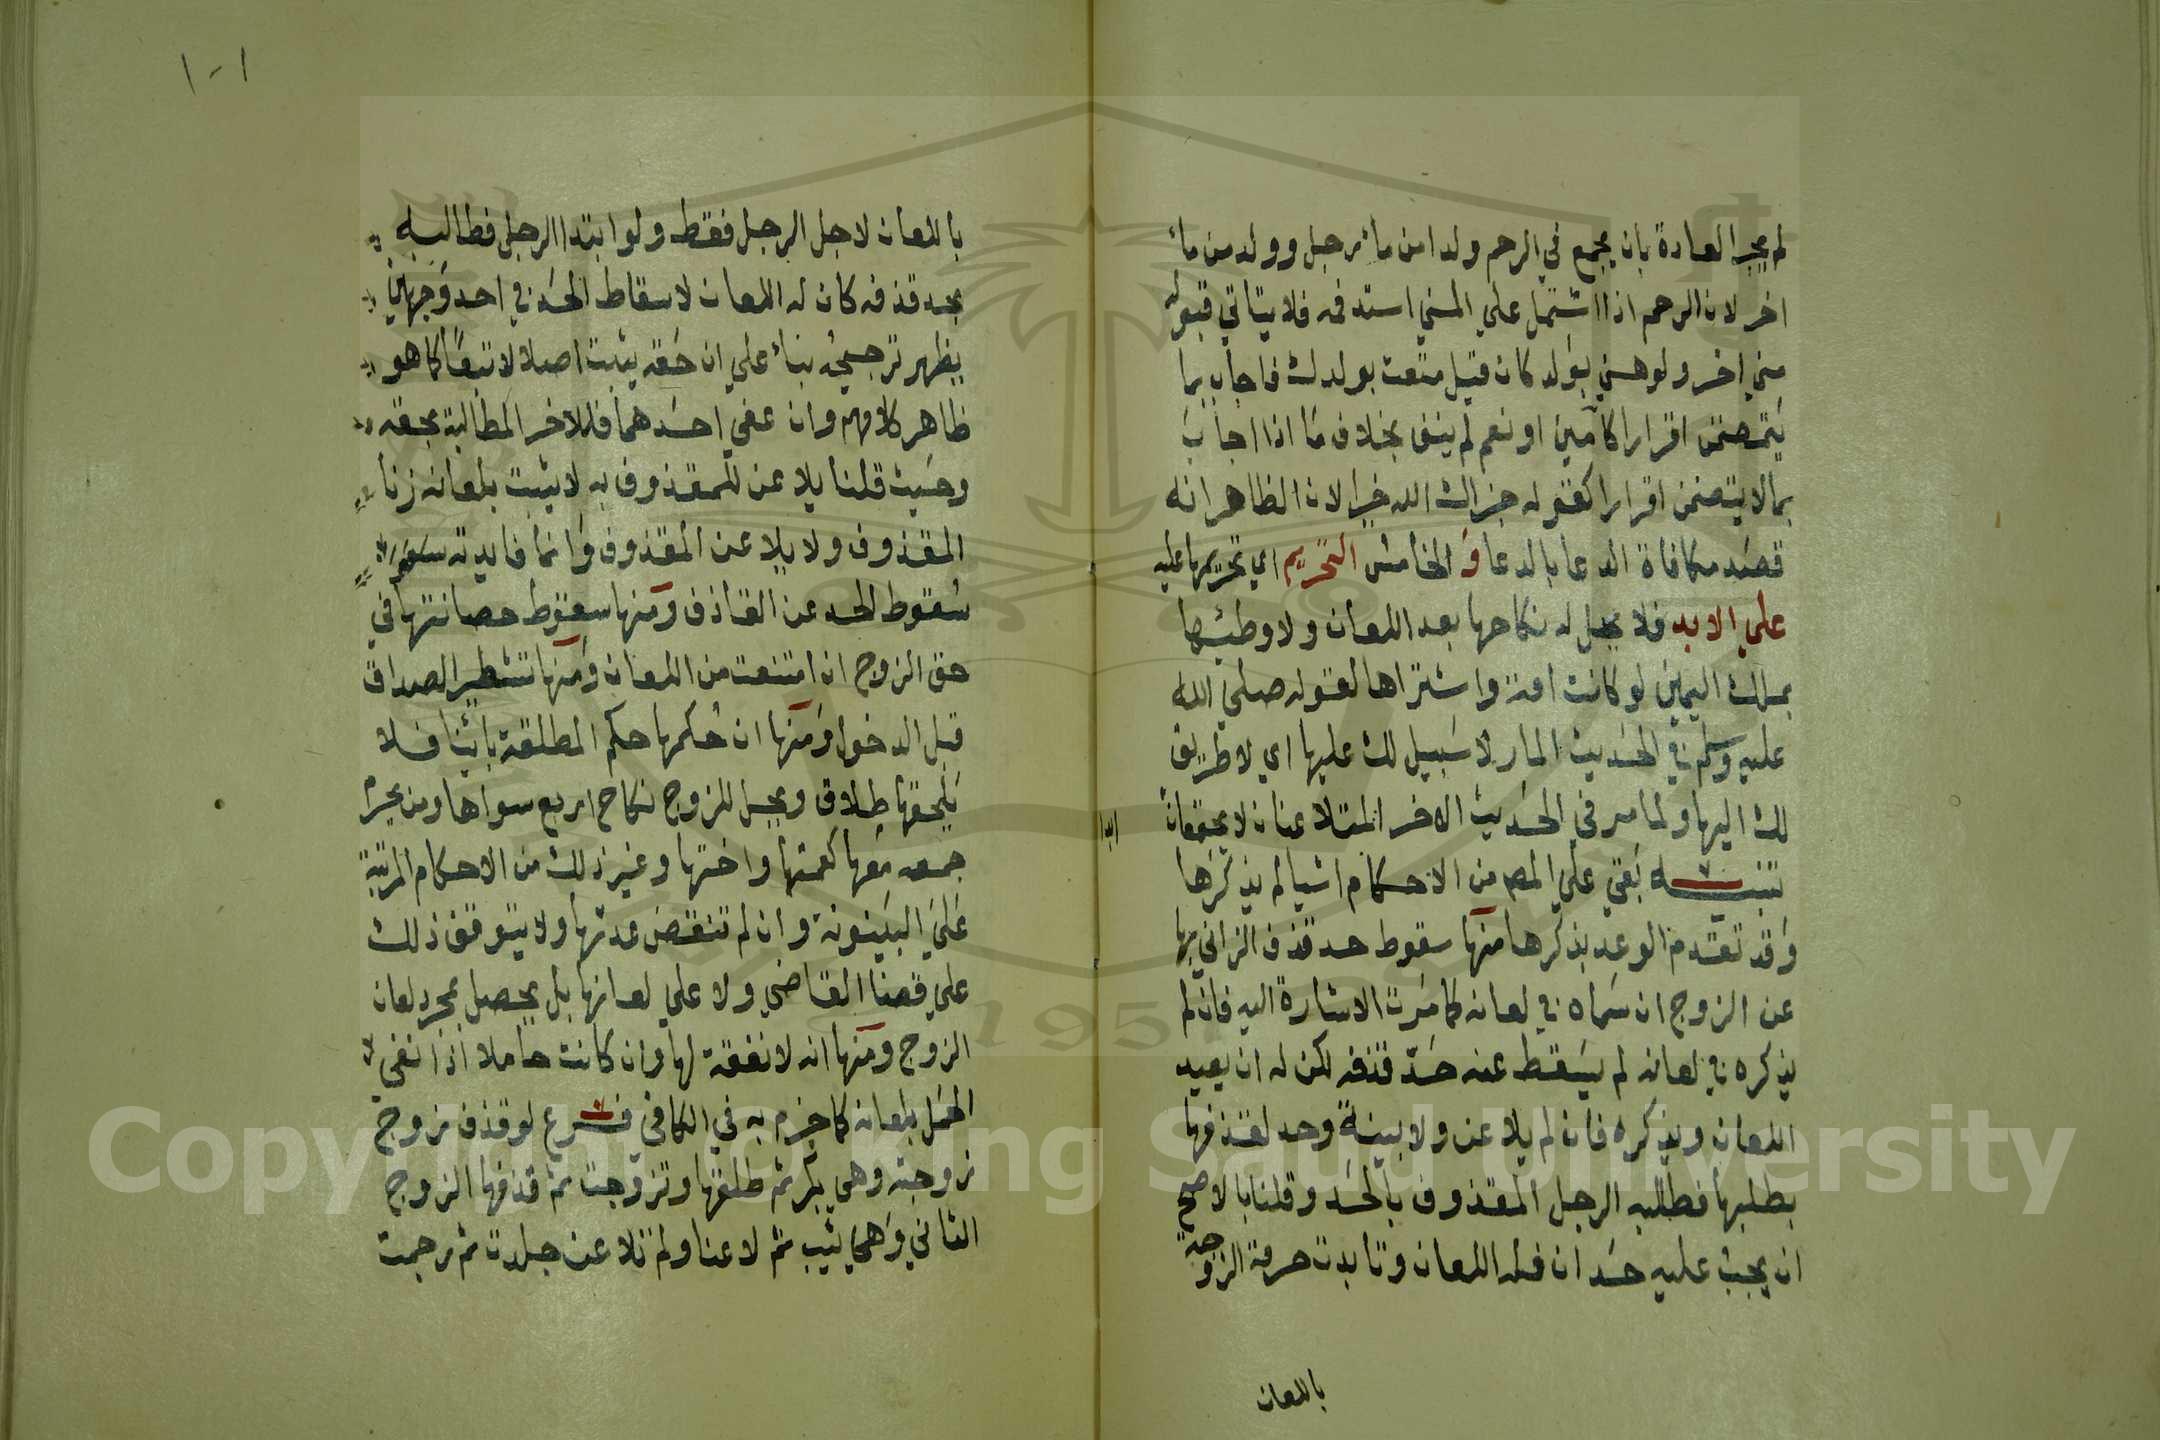 لم يجر العادة بان يجمع في الرحم ولدا من ماء رجل وولد من ماء
اخر لان الرحم اذا اشتمل علي المني استد فمه فلا يتاتي قبوله
مني اخر ولو هني بولد كان قيل متعت بولدك فاجاب بما
يتضمن اقرارا كامين او نعم لم ينف بخلاف ما اذا اجاب
بما لا يتضمن اقرارا كقوله جزاك الله خيرا لان الظاهر انه
قصد مكافاة الدعا بالدعا و الخامس التحريم اي تحريمها عليه
علي الابد فلا يحل له نكاحها بعد اللعان ولا وطئها
بملك اليمين لو كانت امة واشتراها لقوله صلي الله
عليه وسلم في الحديث المار لا سبيل لك عليها اي لا طريق
لك اليها ولما مر في الحديث الاخر المتلاعنان لا يجتمعان
ابدا
تنبيه بقي علي المص من الاحكام اشيا لم يذكرها
وقد تقدم الوعد بذكرها منها سقوط حد قذف الزاني بها
عن الزوج ان سماه في لعانه كما مرت الاشارة اليه فان لم
يذكره في لعانه لم يسقط عنه حد قذفه لكن له ان يعيد
اللعان ويذكره فان لم يلاعن ولا بينة وحد لقذفها
بطلبها فطالبه الرجل المقذوف بالحد وقلنا بالاصح
ان يجب عليه حد ان فله اللعان وتابدت حرمة الزوجة
باللعان
١٠١
باللعان لاجل الرجل فقط ولو ابتدا الرجل فطالبه
بحد قذفه كان له اللعان لاسقاط الحد في احد وجهين
يظهر ترجيحه بناء علي ان حقه يثبت اصلا لا تبعا كما هو
ظاهر كلامهم وان عفي احدهما فللاخر المطالبة بحقه
وحيث قلنا يلاعن للمقذوف به لا يثبت بلعانه زنا
المقذوف ولا يلاعن المقذوف وانما فايدته
سقوط الحد عن القاذف ومنها سقوط حصانتها في
حق الزوج ان امتنعت من اللعان ومنها تشطير الصداق
قبل الدخول ومنها ان حكمها حكم المطلقة باينا فلا
يلحقها طلاق ويحل للزوج نكاح اربع سواها ومن يحرم
جمعه معها كعمتها واختها وغير ذلك من الاحكام المرتبة
علي البينونة وان لم تنقض عدتها ولا يتوقف ذلك
علي قضا القاضي ولا علي لعانها بل يحصل بمجرد لعان
الزوج ومنها انه لا نفقة لها وان كانت حاملا اذا نفي
الحمل بلعانه كما جزم به في الكافي فرع لو قذف زوج
زوجته وهي بكر ثم طلقها وتزوجت ثم قذفها الزوج
الثاني وهي ثيب ثم لاعنا ولم تلاعن جلدت ثم رجمت
Copyright © King Saud University
1957